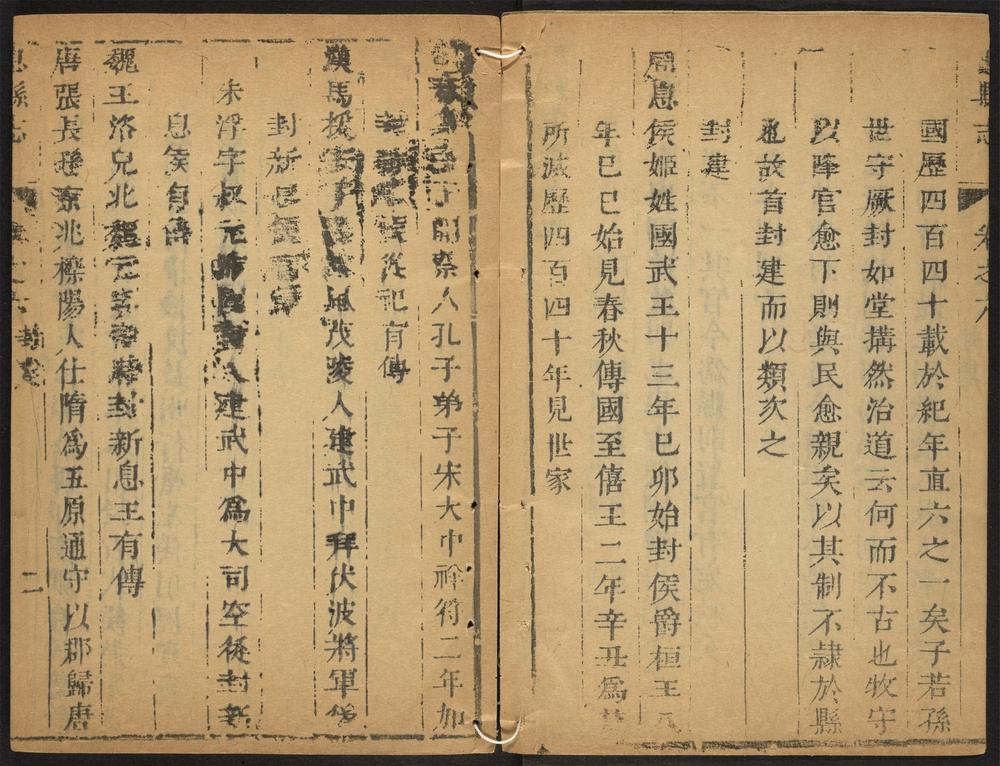 縣志 卷之六
國歷四百四十載於紀年直六之一矣子若孫
世守厥封如堂搆然治道云何而不古也牧守
以降官愈下則與民愈親矣以其制不隷於縣
也故首封建而以類次之
封建
周息侯姬姓國武王十三年巳卯始封侯爵桓王
年巳巳始見春秋傳國至僖王二年辛丑爲
所滅歷四百四十年見世家
開蔡人孔子弟子宋大中祥符二年加
封 從祀有傳
漢馬援字 茂陵人建武中拜伏波將軍
封新息侯
朱浮字叔元沛 人建武中爲大司空後封新
息侯有傳
魏王洛兒北魏元 時封新息王有傳
唐張長遜京兆櫟陽人仕隋爲五原通守以郡歸唐
息縣志 二